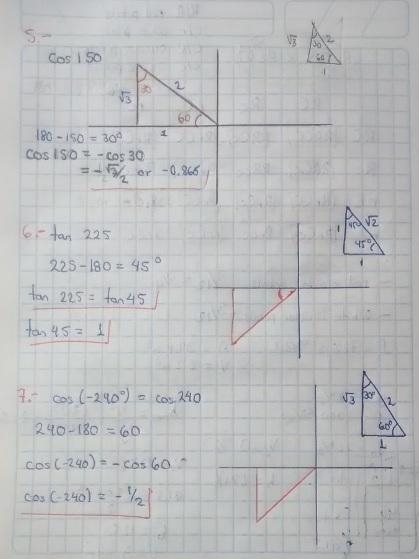 5.-
cos 150
√3 30 2 60 1
√3 30 2 60 1
180-150 = 30°
cos 150 = -cos 30
= -√3/2 or -0.866
6.- tan 225
225-180 = 45°
tan 225 = tan 45
tan 45 = 1
1 45° √2 45° 1
7.- cos (-240°) = cos 240
240-180 = 60
cos (-240) = -cos 60
cos (-240) = -1/2
√3 30° 2 60° 1